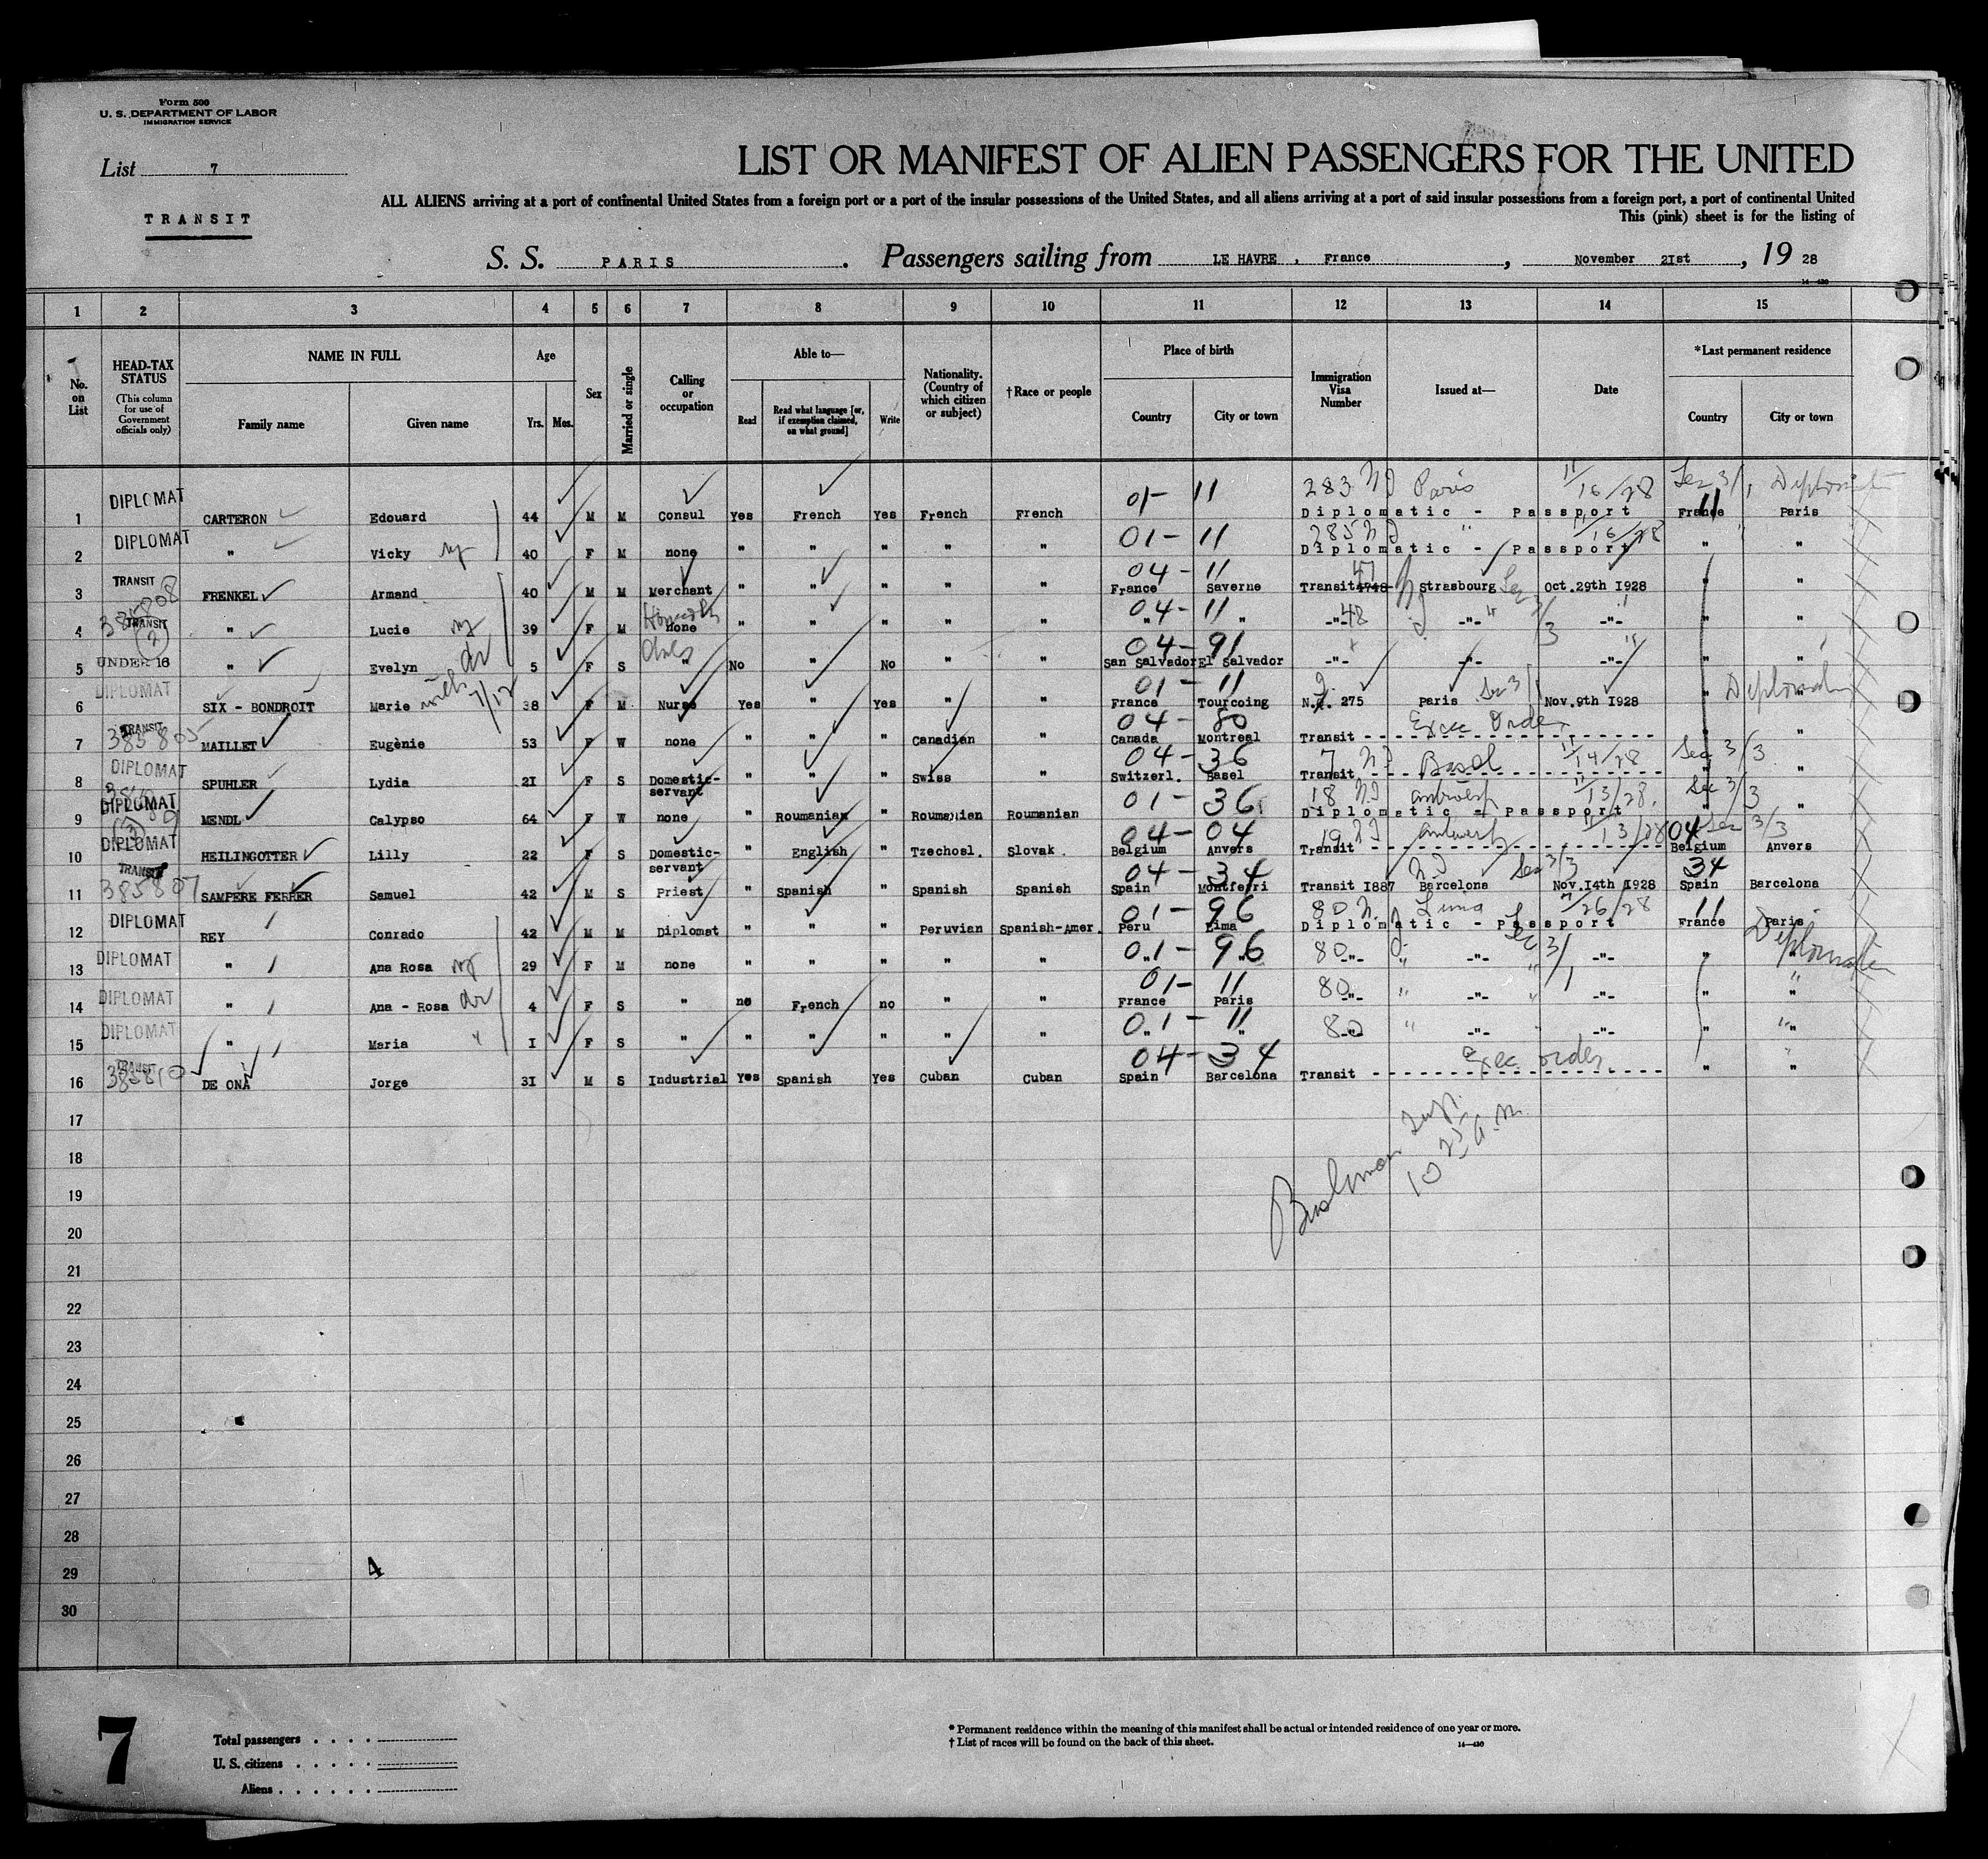 Form 500
U. S. DEPARTMENT OF LABOR
IMMIGRATION SERVICE
List 7
LIST OR MANIFEST OF ALIEN PASSENGERS FOR THE UNITED
ALL ALIENS arriving at a port of continental United States from a foreign port or a port of the insular possessions of the United States, and all aliens arriving at a port of said insular possessions from a foreign port, a port of continental United
TRANSIT
This (pink) sheet is for the listing of
S. S. PARIS. Passengers sailing from LE HAVRE, France, November 2Ist, 19 28
14-430
1 2 3 4 5 6 7 8 9 10 11 12 13 14 15
No. on List HEAD-TAX STATUS (This column for use of Government officials only) NAME IN FULL Family name Given name Age Yrs. Mos. Sex Married or single Calling or occupation Able to— Read Read what language [or, if exemption claimed, on what ground] Write Nationality. (Country of which citizen or subject) †Race or people Place of birth Country City or town Immigration Visa Number Issued at— Date *Last permanent residence Country City or town
1 DIPLOMAT CARTERON Edouard 44 M M Consul Yes French Yes French French 01-11 283 Paris 11/16/28 Diplomatic - Passport Sec 3/1 11 France Paris
2 DIPLOMAT " Vicky 40 F M none " " " " " 01-11 285 " 11/16/28 Diplomatic - Passport " "
3 TRANSIT FRENKEL Armand 40 M M Merchant " " " " " 04-11 France Saverne Transit 4748 47 Strasbourg Oct.29th I928 " "
4 TRANSIT 385808 (2) " Lucie 39 F M none " " " " " 04-11 " " -"- 48 -"- -"- " "
5 UNDER 16 " Evelyn 5 F S " No " No " " 04-91 San Salvador El Salvador -"- -"- -"- " "
6 DIPLOMAT SIX - BONDROIT Marie 38 F M Nurse Yes " Yes " " 01-11 France Tourcoing 275 Paris Sec 3/1 Nov.9th I928 " "
7 TRANSIT 385805 MAILLET Eugènie 53 F W none " " " Canadian " 04-80 Canada Montreal Transit Exec Order " "
8 DIPLOMAT SPUHLER Lydia 2I F S Domestic-servant " " " Swiss " 04-36 Switzerl. Basel 7 Transit Basel 11/14/28 Sec 3/3 " "
9 DIPLOMAT MENDL Calypso 64 F W none " Roumanian " Roumanian Roumanian 01-36 18 Antwerp 11/13/28 Diplomatic - Passport Sec 3/3 "
10 DIPLOMAT HEILINGOTTER Lilly 22 F S Domestic-servant " English " Tzechosl. Slovak 04-04 Belgium Anvers 19 Transit Antwerp 11/13/28 04 Sec 3/3 Belgium Anvers
11 TRANSIT 385807 SAMPERE FERRER Samuel 42 M S Priest " Spanish " Spanish Spanish 04-34 Spain Montferri Transit I887 Barcelona Sec 3/3 Nov.I4th I928 34 Spain Barcelona
12 DIPLOMAT REY Conrado 42 M M Diplomat " " " Peruvian Spanish-Amer. 01-96 Peru Lima 80 Lima 26/28 Diplomatic - Passport 11 France Paris
13 DIPLOMAT " Ana Rosa 29 F M none " " " " " 01-96 " " 80 -"- -"- -"- " "
14 DIPLOMAT " Ana - Rosa 4 F S " no French no " " 01-11 France Paris 80 -"- -"- -"- " "
15 DIPLOMAT " Maria I F S " " " " " " 01-11 " " 80 -"- -"- -"- " "
16 TRANSIT 385810 DE ONA Jorge 3I M S Industrial Yes Spanish Yes Cuban Cuban 04-34 Spain Barcelona Transit Exec order " "
17
18
19
20
21
22
23
24
25
26
27
28
29
30
4
7
Total passengers
U. S. citizens
Aliens
* Permanent residence within the meaning of this manifest shall be actual or intended residence of one year or more.
† List of races will be found on the back of this sheet.
14-430